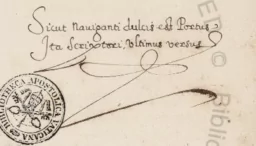 Sicut nauiganti dulcis est Portus
Ita Scriptori, Vltimus versus
BIBLIOTHECA APOSTOLICA VATICANA
Biblio